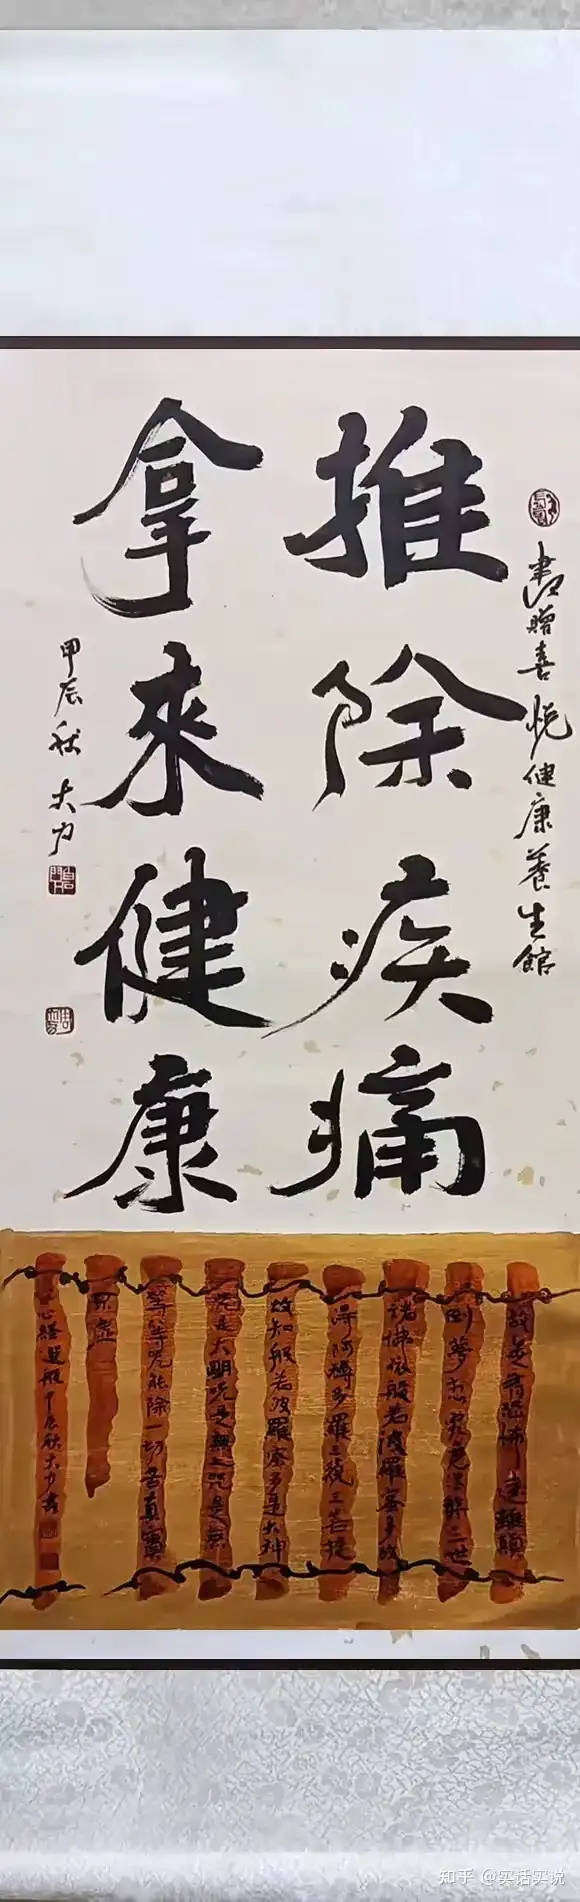 書贈喜悦健康養生館
推除疾痛
拿來健康
甲辰秋 大力
故無有恐怖遠離顛
倒夢想究竟涅槃三世
諸佛依般若波羅蜜多故
得阿耨多羅三藐三菩提
故知般若波羅蜜多是大神
咒是大明咒是無上咒是無
等等咒能除一切苦真實
不虛
心經選段 甲辰秋大力書
知乎 @实话实说